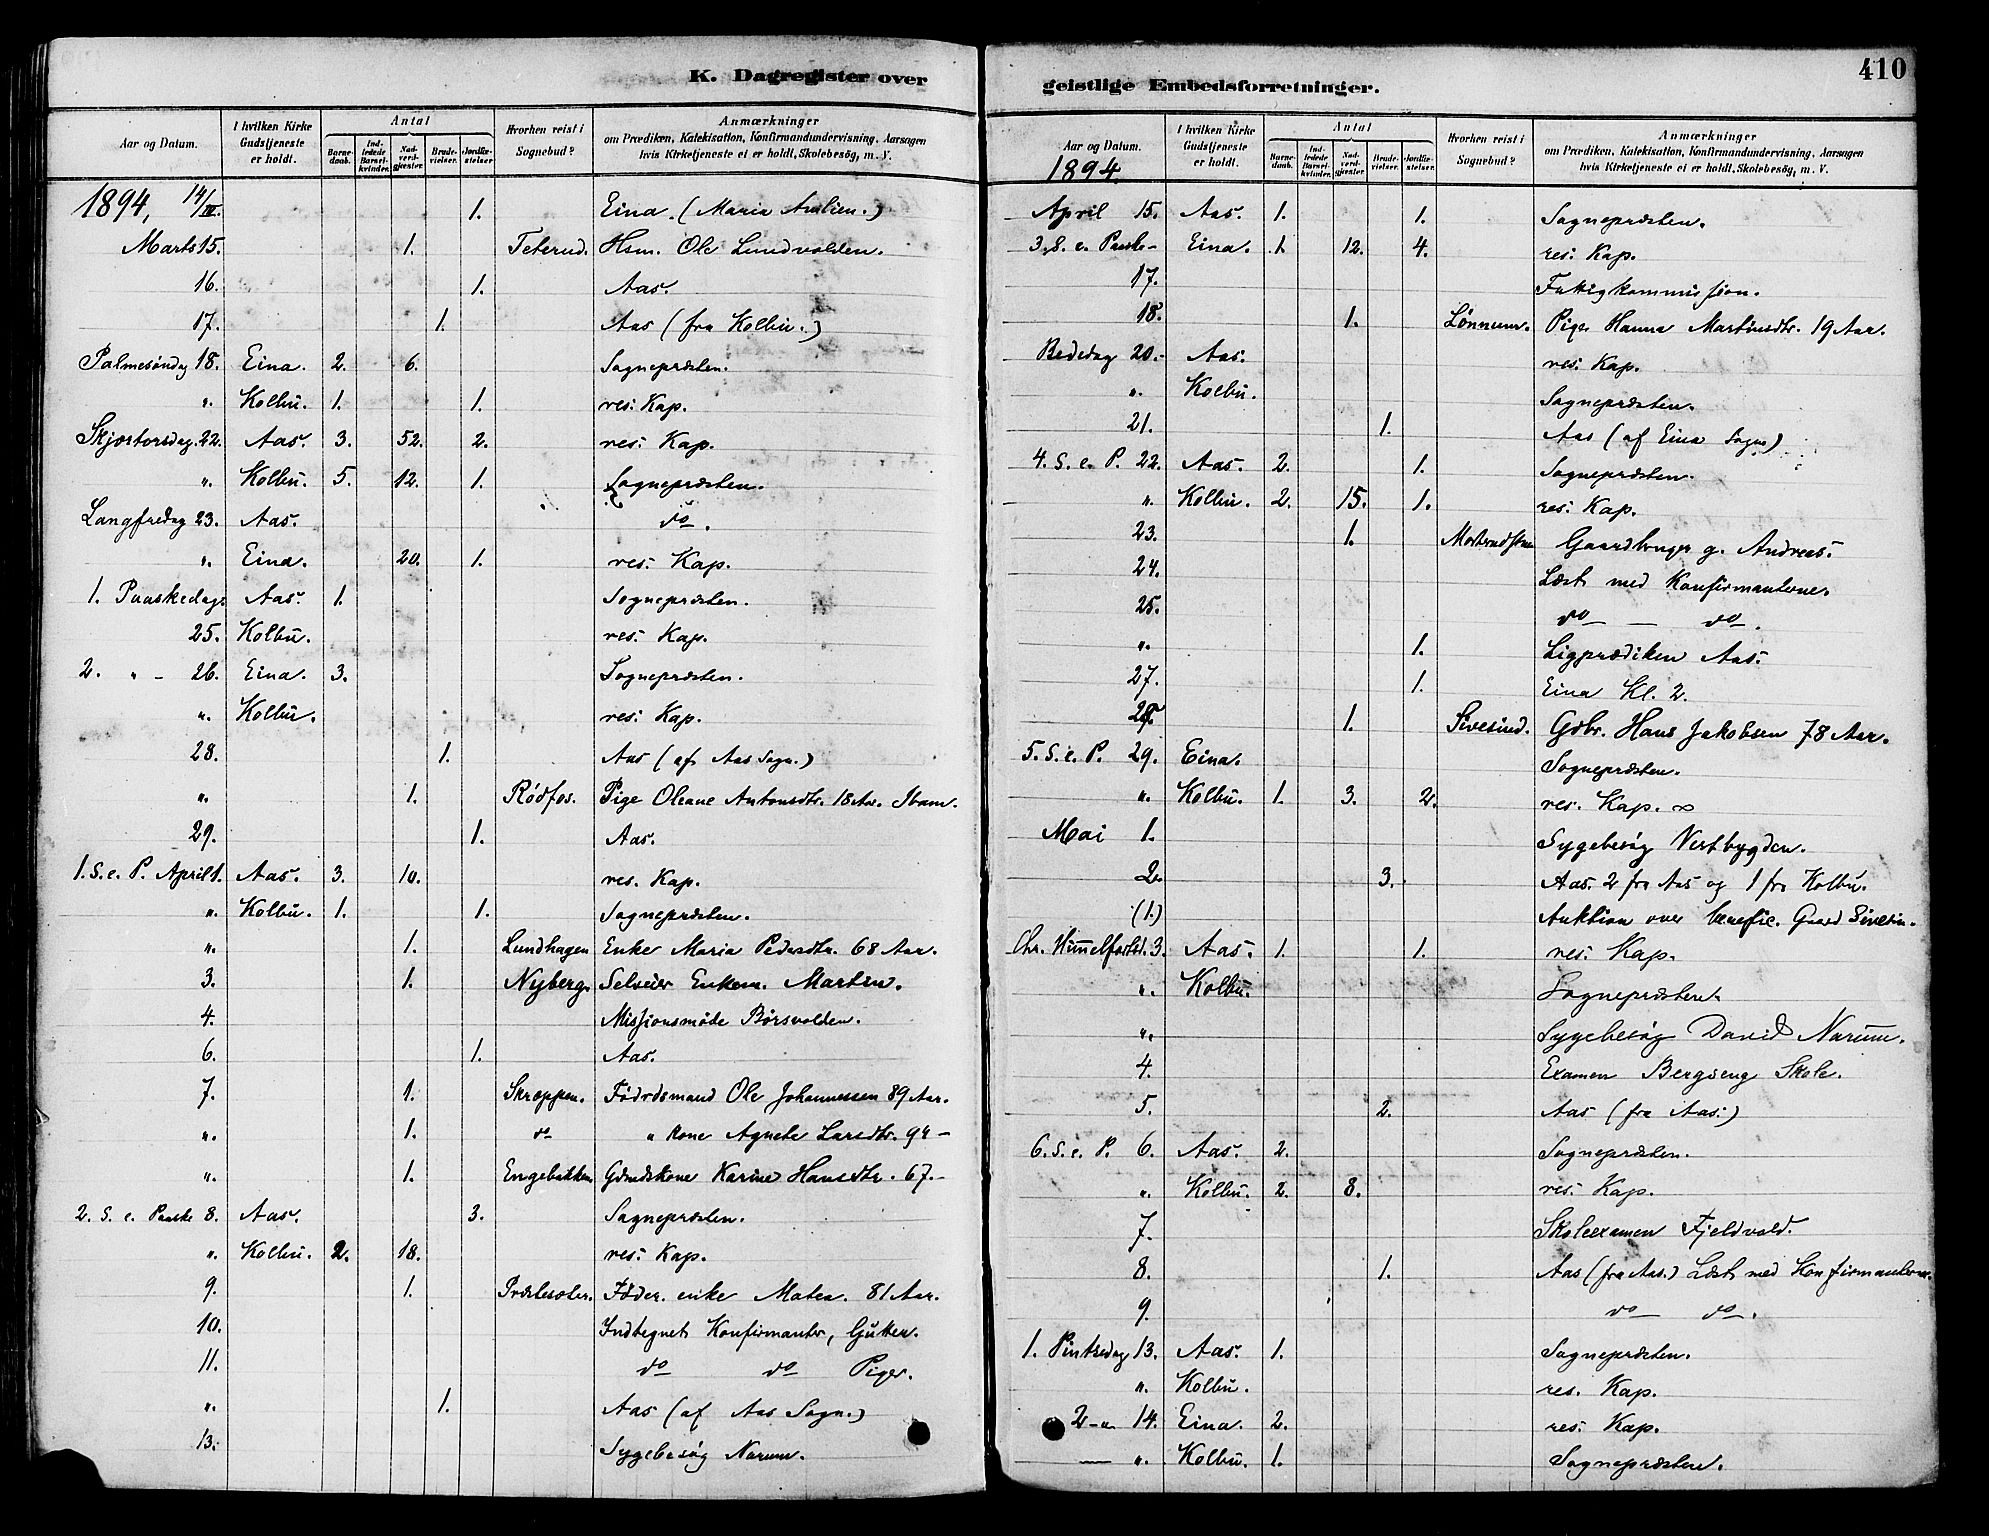 K. Dagregister over
Aar og Datum. I hvilken Kirke Gudstjeneste er holdt. Antal Barnedaab. Indledede Barselkvinder. Nadverdgjester Brudevielser. Jordfæstelser Hvorhen reist i Sognebud? Anmærkninger om Prædiken, Katekisation, Konfirmandundervisning, Aarsagen hvis Kirketjeneste ei er holdt, Skolebesøg, m. V.
1894, 14/III. 1. Eina. (Maria Amlien.)
Marts 15. 1. Teterud. Hsm. Ole Lundvolden.
16. 1. Aas.
17. 1. Aas (fra Kolbu.)
Palmesøndag 18. Eina. 2. 6. Sognepræsten.
". Kolbu. 1. 1. res: Kap.
Skjærtorsdag. 22. Aas. 3. 52. 2. res: Kap.
". Kolbu. 5. 12. 1. Sognepræsten.
Langfredag 23. Aas. do.
". Eina. 20. 1. res: Kap.
1. Paaskedag Aas. 1. Sognepræsten.
25. Kolbu. res: Kap.
2. " - 26. Eina. 3. Sognepræsten.
". Kolbu. res: Kap.
28. 1. Aas (af Aas Sogn.)
". 1. Rødfos. Pige Oleane Antonsdtr. 18 Aar.
29. 1. Aas.
1. S. e. P. April 1. Aas. 3. 10. res. Kap.
". Kolbu. 1. 1. Sognepræsten.
". 1. Lundhagen Enke Maria Pedersdtr. 68 Aar.
3. 1. Nyberg. Selveier Enkem. Martin.
4. Missionsmøde Børsvolden.
6. 1. Aas.
7. 1. Skræppen. Føderaadsmand Ole Johannessen 89 Aar.
". 1. do " Kone Agnete Larsdtr. 94 -
". 1. Engebakken Gmdskone Karine Hansdtr. 67. -
2. S. e. Paaske 8. Aas. 3. Sognepræsten.
". Kolbu. 2. 18. res: Kap.
9. 1. Præstesæter. Føder. enke Matea. 81 Aar.
10. Indtegnet Konfirmanter, Gutter.
11. do do Piger.
". 1. Aas (af Aas Sogn.)
13. Sygebesøg Narum.
geistlige Embedsforretninger.
410
Aar og Datum. I hvilken Kirke Gudstjeneste er holdt. Antal Barnedaab. Indledede Barselkvinder. Nadverdgjester. Brudevielser. Jordfæstelser. Hvorhen reist i Sognebud? Anmærkninger om Prædiken, Katekisation, Konfirmandundervisning, Aarsagen hvis Kirketjeneste ei er holdt, Skolebesøg, m. V.
1894.
April 15. Aas. 1. 1. Sognepræsten.
3. S. e. Paaske - Eina. 1 12. 4. res: Kap.
17. Fattigkommission.
18. 1. Lønnum. Pige Hanna Martinsdtr. 19 Aar.
Bededag 20. - Aas. res: Kap.
". Kolbu. Sognepræsten.
21. 1. Aas (af Eina Sogn)
4. S. e. P. 22. Aas. 2. 1. Sognepræsten.
". Kolbu. 2. 15. 1. res: Kap.
23. 1. Gaardbruger g. Andreas.
24. Læst med Konfirmanterne.
25. do - do.
". 1. Ligprædiken Aas.
27. 1. Eina Kl. 2.
28. 1. Sivesind. Gdbr. Hans Jakobsen 78 Aar.
5. S. e. P. 29. Eina. Sognepræsten.
". Kolbu. 1. 3. 2. res. Kap.
Mai 1. Sygebesøg Vestbygden.
2. 3. Aas. 2 fra Aas og 1 fra Kolbu.
(1.) Auktion over benefic. Gaard Sivesin.
Chr. Himmelfartsd. 3. Aas. 1. 1. res. Kap.
". Kolbu. Sognepræsten.
". Sygebesøg David Narum.
4. Examen Bergseng Skole.
5. 2. Aas (fra Aas.)
6. S. e. P. 6. Aas. 2. Sognepræsten.
". Kolbu. 2. 8. res: Kap.
7. Skoleexamen Fjeldvold.
8. 1. Aas (fra Aas.) Læst med Konfirmanterne.
9. do - do.
1. Pintsedag 13. Aas. 1. Sognepræsten.
". Kolbu. res. Kap.
2 - " 14. Eina. 2. res: Kap.
— ". Kolbu. 1. Sognepræsten.